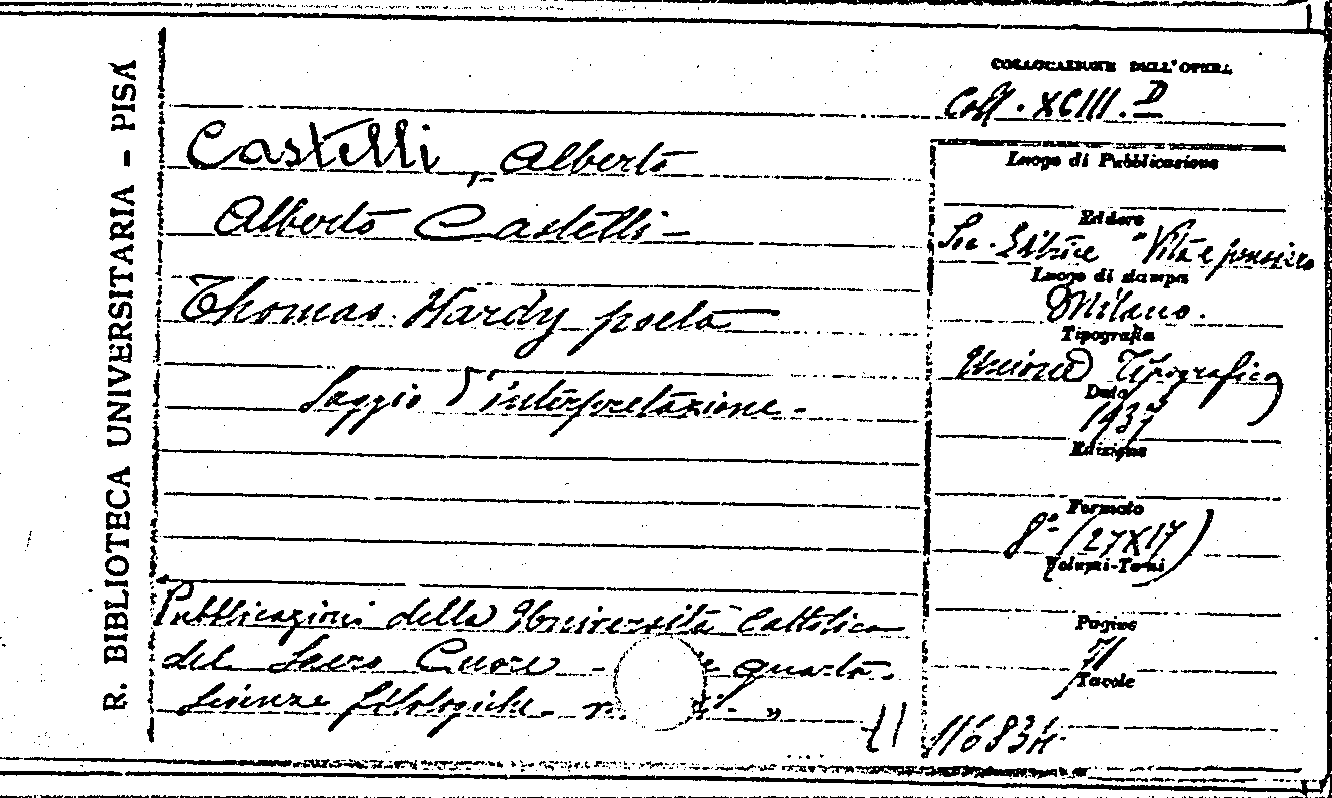 R. BIBLIOTECA UNIVERSITARIA - PISA
COLLOCAZIONE DELL'OPERA
Coll. XCIII. D
Castelli, Alberto
Alberto Castelli -
Thomas Hardy poeta
Saggio d'interpretazione -
Pubblicazioni della Università Cattolica
del Sacro Cuore - quarta.
Scienze filologiche -
Luogo di Pubblicazione
Editore
Soc. Editrice "Vita e pensiero
Luogo di stampa
Milano.
Tipografia
Unione Tipografica
Data
1937
Edizione
Formato
8° (27X17)
Volumi-Tomi
Pagine
71
Tavole